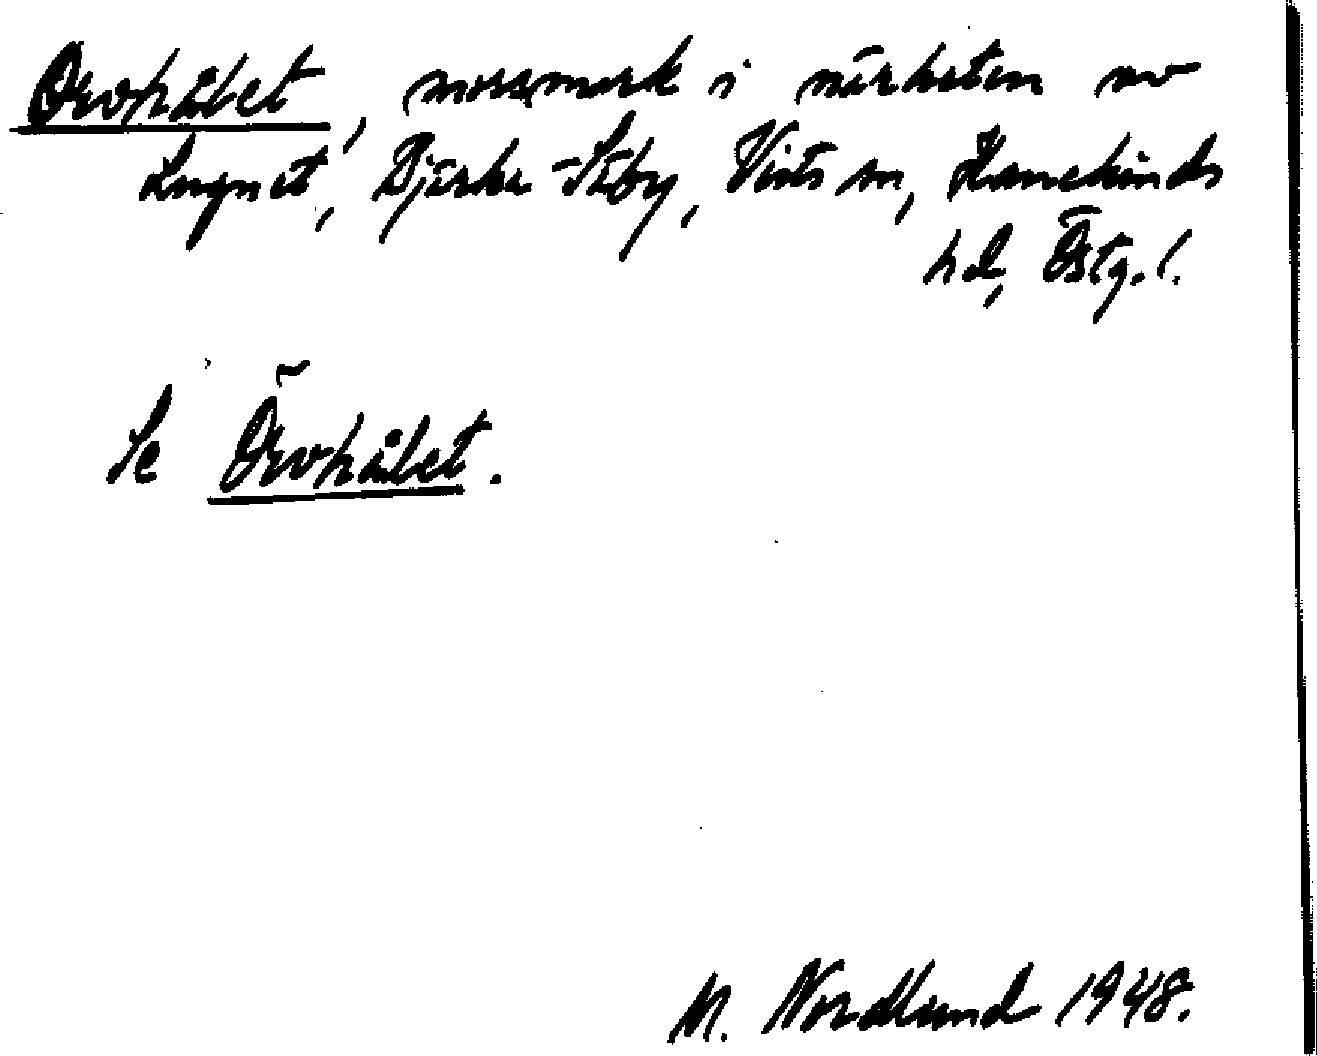 Orvhålet, mossmark i närheten av
Lugnet, Bjärka-Säby, Vists sn, Hanekinds
hd, Östg. l.
Se Örvhålet.
M. Nordlund 1948.